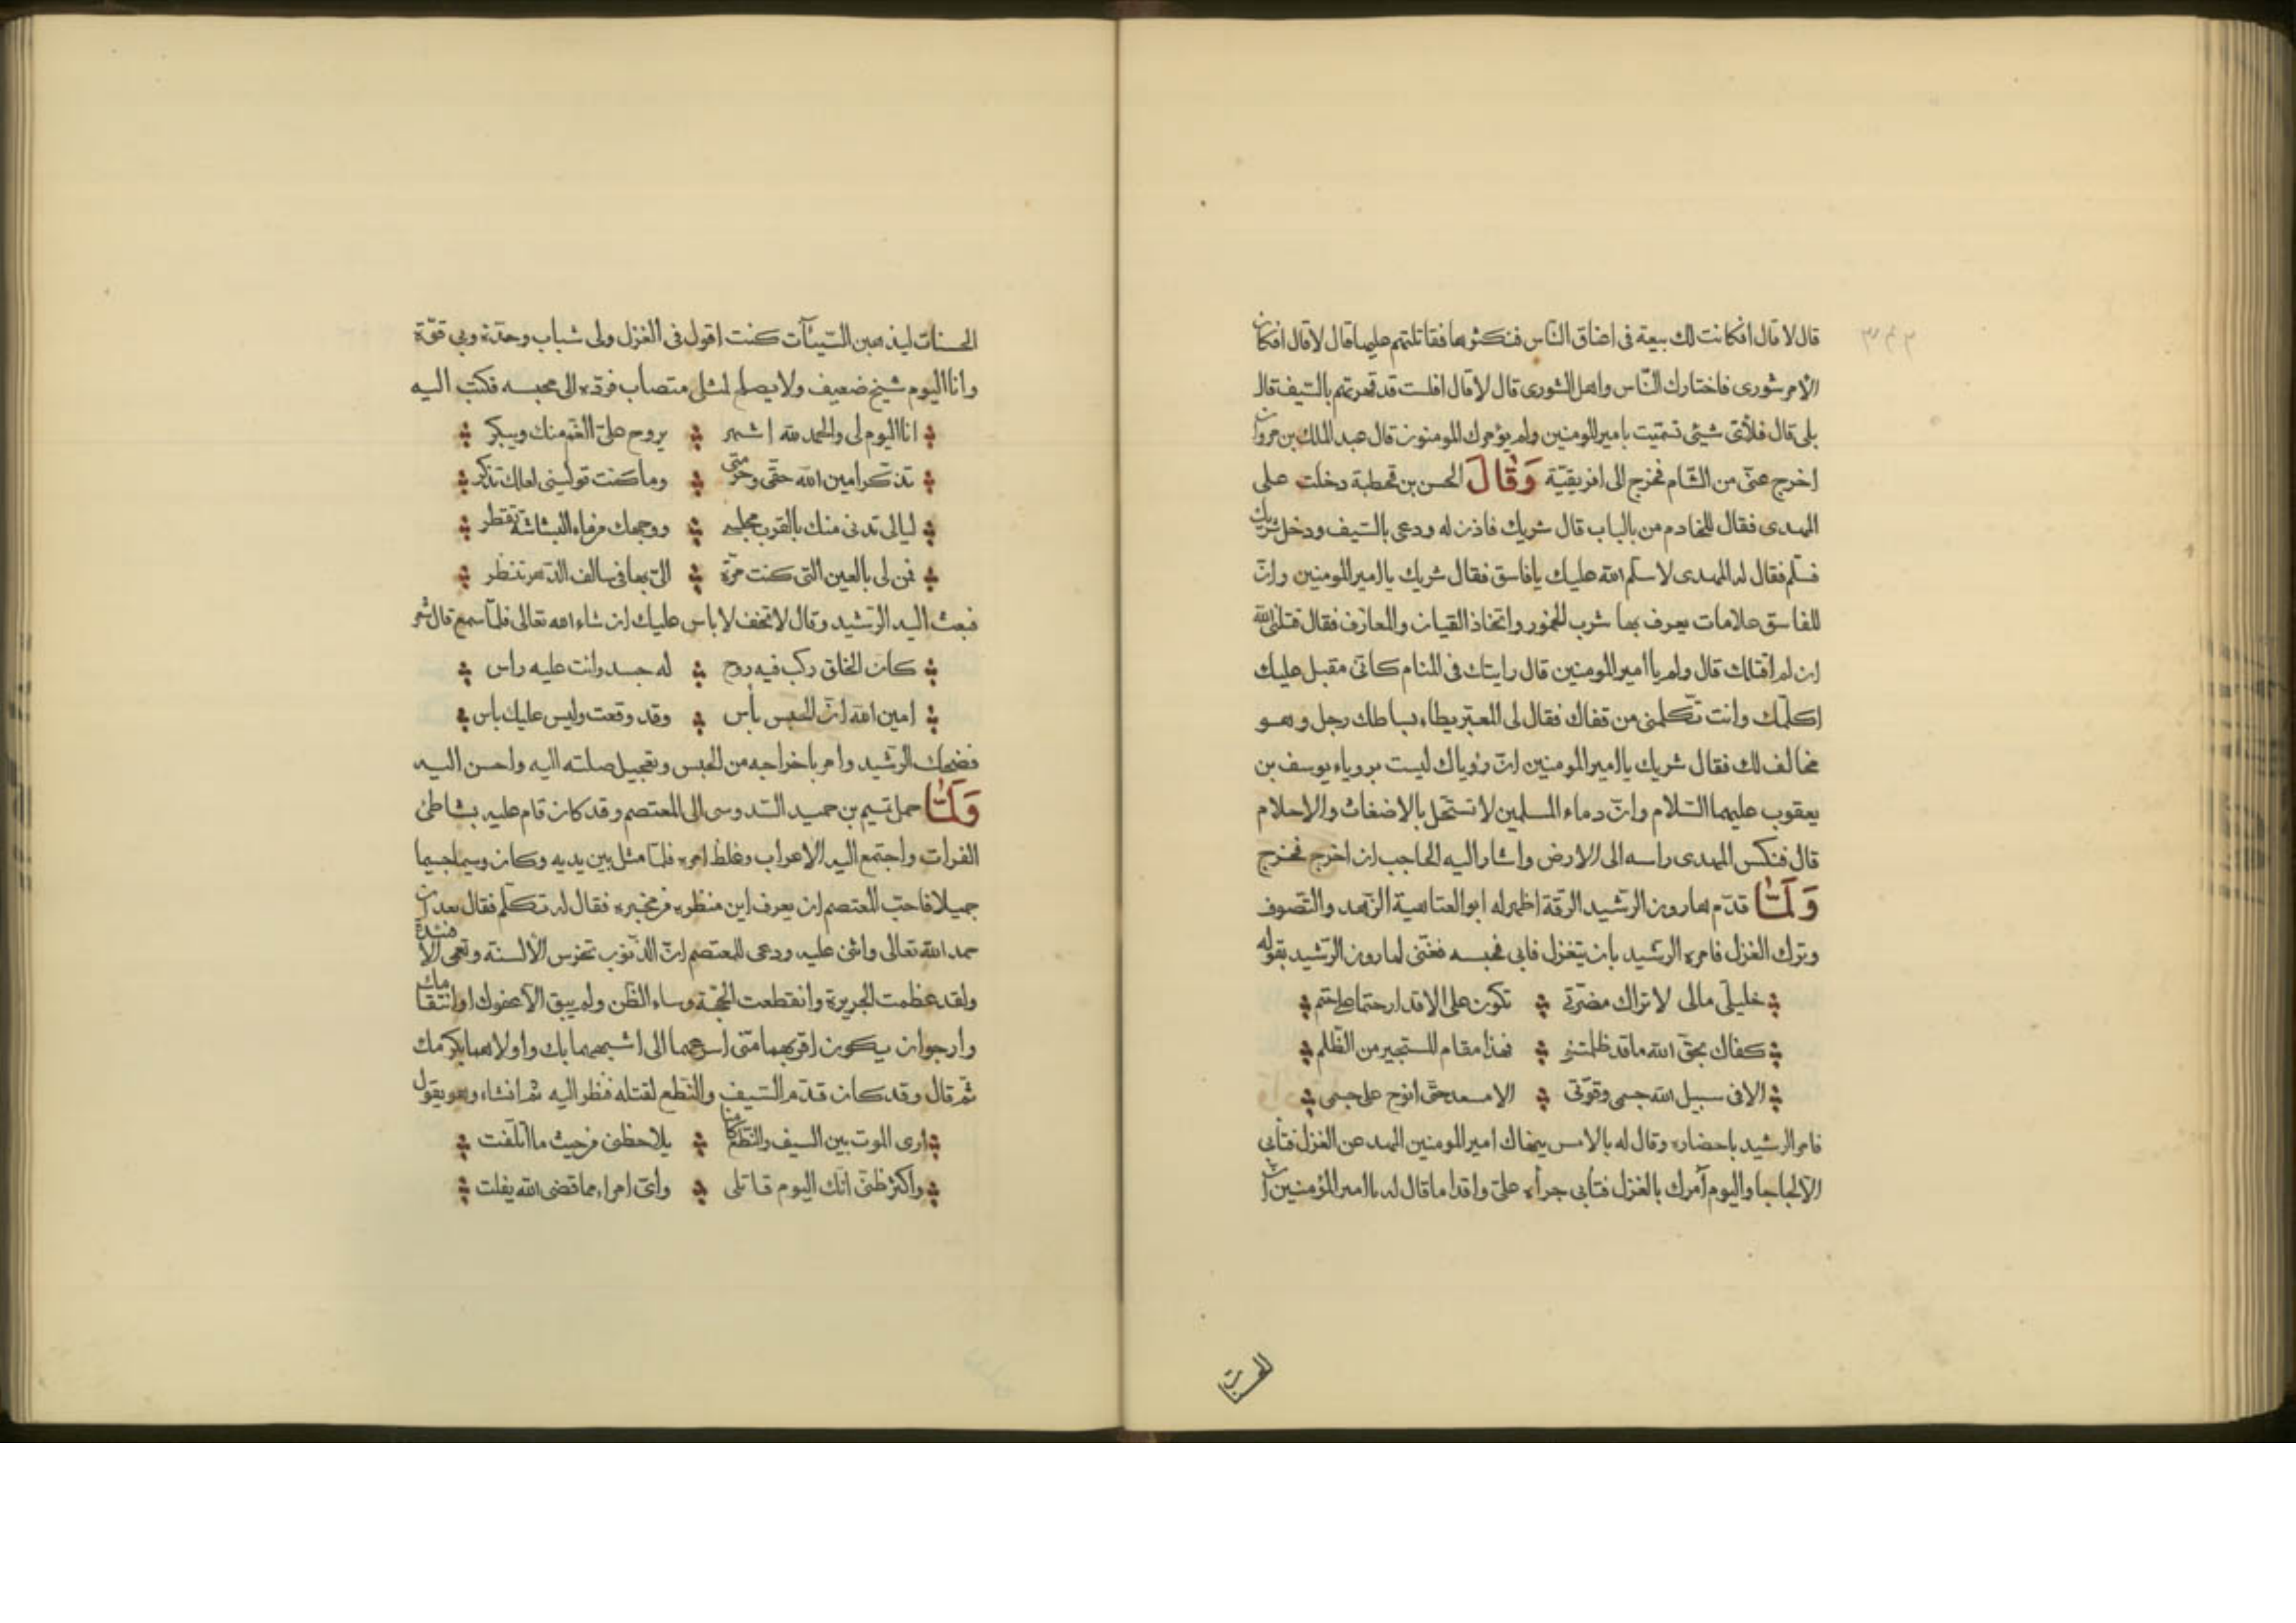 قال لا قال افكانت لك بيعة في اعناق الناس فنكثوها فقاتلتهم عليها قال لا قال افكان
الامر شورى فاختارك النّاس واهل الشورى قال لا قال افلست قد قهرتهم بالسّيف قال
بلى قال فلأىّ شيئى تسمّيت بامير المومنين ولم يؤمرك المومنون قال عبد الملك بن مروان
اخرج عنّى من الشّام فخرج الى افريقيّة وَقَالَ الحسن بن قحطبة دخلت على
المهدى فقال للخادم من بالباب قال شريك فاذن له ودعى بالسّيف ودخل شريك
فسلّم فقال له المهدى لا سلّم الله عليك يا فاسق فقال شريك يا امير المومنين وانّ
للفاسق علامات يعرف بها شرب الخمور واتخاذ القيان والمعازف فقال قتلنى الله
ان لم اقتلك قال ولم يا امير المومنين قال رايتك فى المنام كانى مقبل عليك
اكلّمك وانت تكلّمنى من قفاك فقال لى المعبّر يطاء بساطك رجل وهو
مخالف لك فقال شريك يا امير المومنين انّ رؤياك ليست برؤياء يوسف بن
يعقوب عليهما السّلام وانّ دماء المسلمين لا تستحلّ بالاضغاث والاحلام
قال فنكس المهدى راسه الى الارض واشار اليه الحاجب ان اخرج فخرج
وَلَمّا قدّم هارون الرشيد الرقّة اظهر له ابو العتاهية الزّهد والتّصوف
وترك الغزل فامره الرشيد بان يتغزل فابى فحبسه فغنّى لهارون الرّشيد بقوله
خليلىّ مالى لا تزاك مضرّتى تكون على الاقدار حتما على حتم
كفاك بحق الله ما قد ظلمتنى فهذا مقام المستجير من الظّلم
الا فى سبيل الله جسمى وقوّتى الا مسعد حتّى انوح على جسمى
فامر الرشيد باحضاره وقال له بالامس ينهاك امير المومنين المهدى عن الغزل فتأبى
الا لجاجا واليوم آمرك بالغزل فتأبى جرأه علىّ واقداما قال له يا امير المؤمنين انّ
الحسنات
الحسنات ليذهبن السّيئآت كنت اقول فى الغزل ولى شباب وحدّة وبى قوّة
وانا اليوم شيخ ضعيف ولا يصلح لمثلى متصاب فردّه الى محبسه فكتب اليه
انا اليوم لى والحمد لله اشهر يروح علىّ الغم منك ويبكر
تذكّر امين الله حقّى وحرمتى وما كنت تولينى لعلك تذكر
ليالى تدنى منك بالقرب مجلسى ووجهك من ماء البشاشة تقطر
فمن لى بالعين التى كنت مرّة الىّ بها فى سالف الدّهر تنظر
فبعث اليه الرّشيد وقال لا تخف لا باس عليك ان شاء الله تعالى فلمّا سمع قال شعر
كان الخلق ركب فيه روح له جسد وانت عليه راس
امين الله انّ الحبس بأس وقد وقعت وليس عليك باس
فضحك الرّشيد وامر باخراجه من الحبس وتعجيل صلته اليه واحسن اليه
وَلَمّا حمل تميم بن حميد السّدوسى الى المعتصم وقد كان قام عليه بشاطئ
الفرات واجتمع اليه الاعراب وغلظ امره فلمّا مثل بين يديه وكان وسيما جسيما
جميلا فاحبّ المعتصم ان يعرف اين منظره من مخبره فقال له تكلّم فقال بعد ان
حمد الله تعالى واثنى عليه ودعى للمعتصم انّ الذّنوب تخرس الألسنة وتعمى الافئدة
ولقد عظمت الجريرة وانقطعت الحجّة وساء الظّن ولم يبق الا عفوك او انتقامك
وارجو ان يكون اقربهما منّى اسرعهما الى اشبههما بك واولاهما بكرمك
ثمّ قال وقد كان قدّم السّيف والنّطع لقتله فنظر اليه ثم انشاء وهو يقول
ارى الموت بين السيف والنّطع كامنا يلاحظنى من حيث ما اتلّفت
واكثر ظنّى انّك اليوم قاتلى وأىّ امراء مما قضى الله يفلت